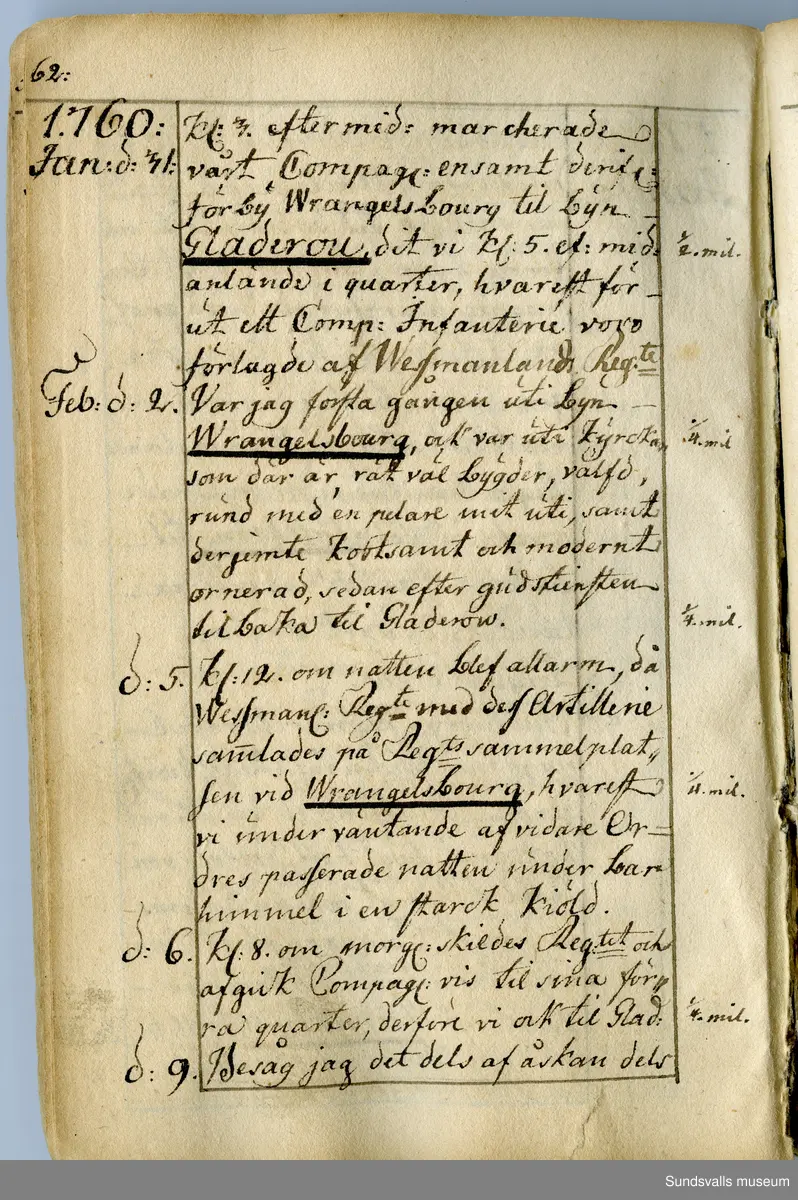 62:
1760: Kl: 3. eftermid: marcherade
Jan: d: 31: vårt Compag: ensamt derif:
förbÿ Wrangelsbourg til bÿn
Gladerou, dit vi Kl: 5. ef: mid: 1/2. mil.
anlände i quarter, hvarest för-
ut ett Comp: Infanterie voro
förlagde af Wessmanlands Reg:te
Feb: d: 2. Var jag första gången uti bÿn
Wrangelsbourg, ock var uti Kÿrckan, 1/4. mil
som där är, rät väl bÿgder, välfd,
rund med en pelare mit uti, samt
derjemte kostsamt och modernt
ornerad, sedan efter gudstiensten
tilbaka til Gladerow. 1/4. mil.
d: 5. Kl: 12. om natten blef allarm, då
Wessman: Regte med dess Artillerie
samlades på Regts sammelplat„
sen vid Wrangelsbourg, hvarest 1/4. mil.
vi under väntande af vidare Or=
dres passerade natten under bar
himmel i en starck Kiöld.
d: 6. Kl: 8. om morg: skildes Reg:tet och
afgick Compag: vis til sina för„
ra quarter, derföre vi ock til Glad: 1/4. mil.
d: 9. Besåg jag det dels af åskan dels
Sundsvalls museum